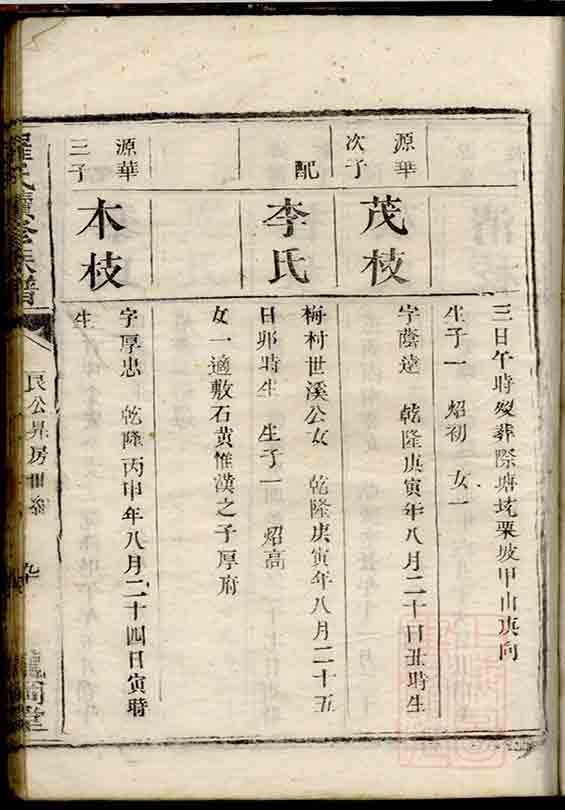 三日午時歿葬際塘坑栗坡甲山庚向
生子一 炤初 女一
源華
次子
茂枝
字蔭達 乾隆庚寅年八月二十日丑時生
配
李氏
梅村世溪公女 乾隆庚寅年八月二十五
日卯時生 生子一 炤高
女一適敷石黃惟漢之子厚府
源華
三子
木枝
字厚忠 乾隆丙申年八月二十四日寅時
生
羅氏續修族譜
良公昇房世系
九